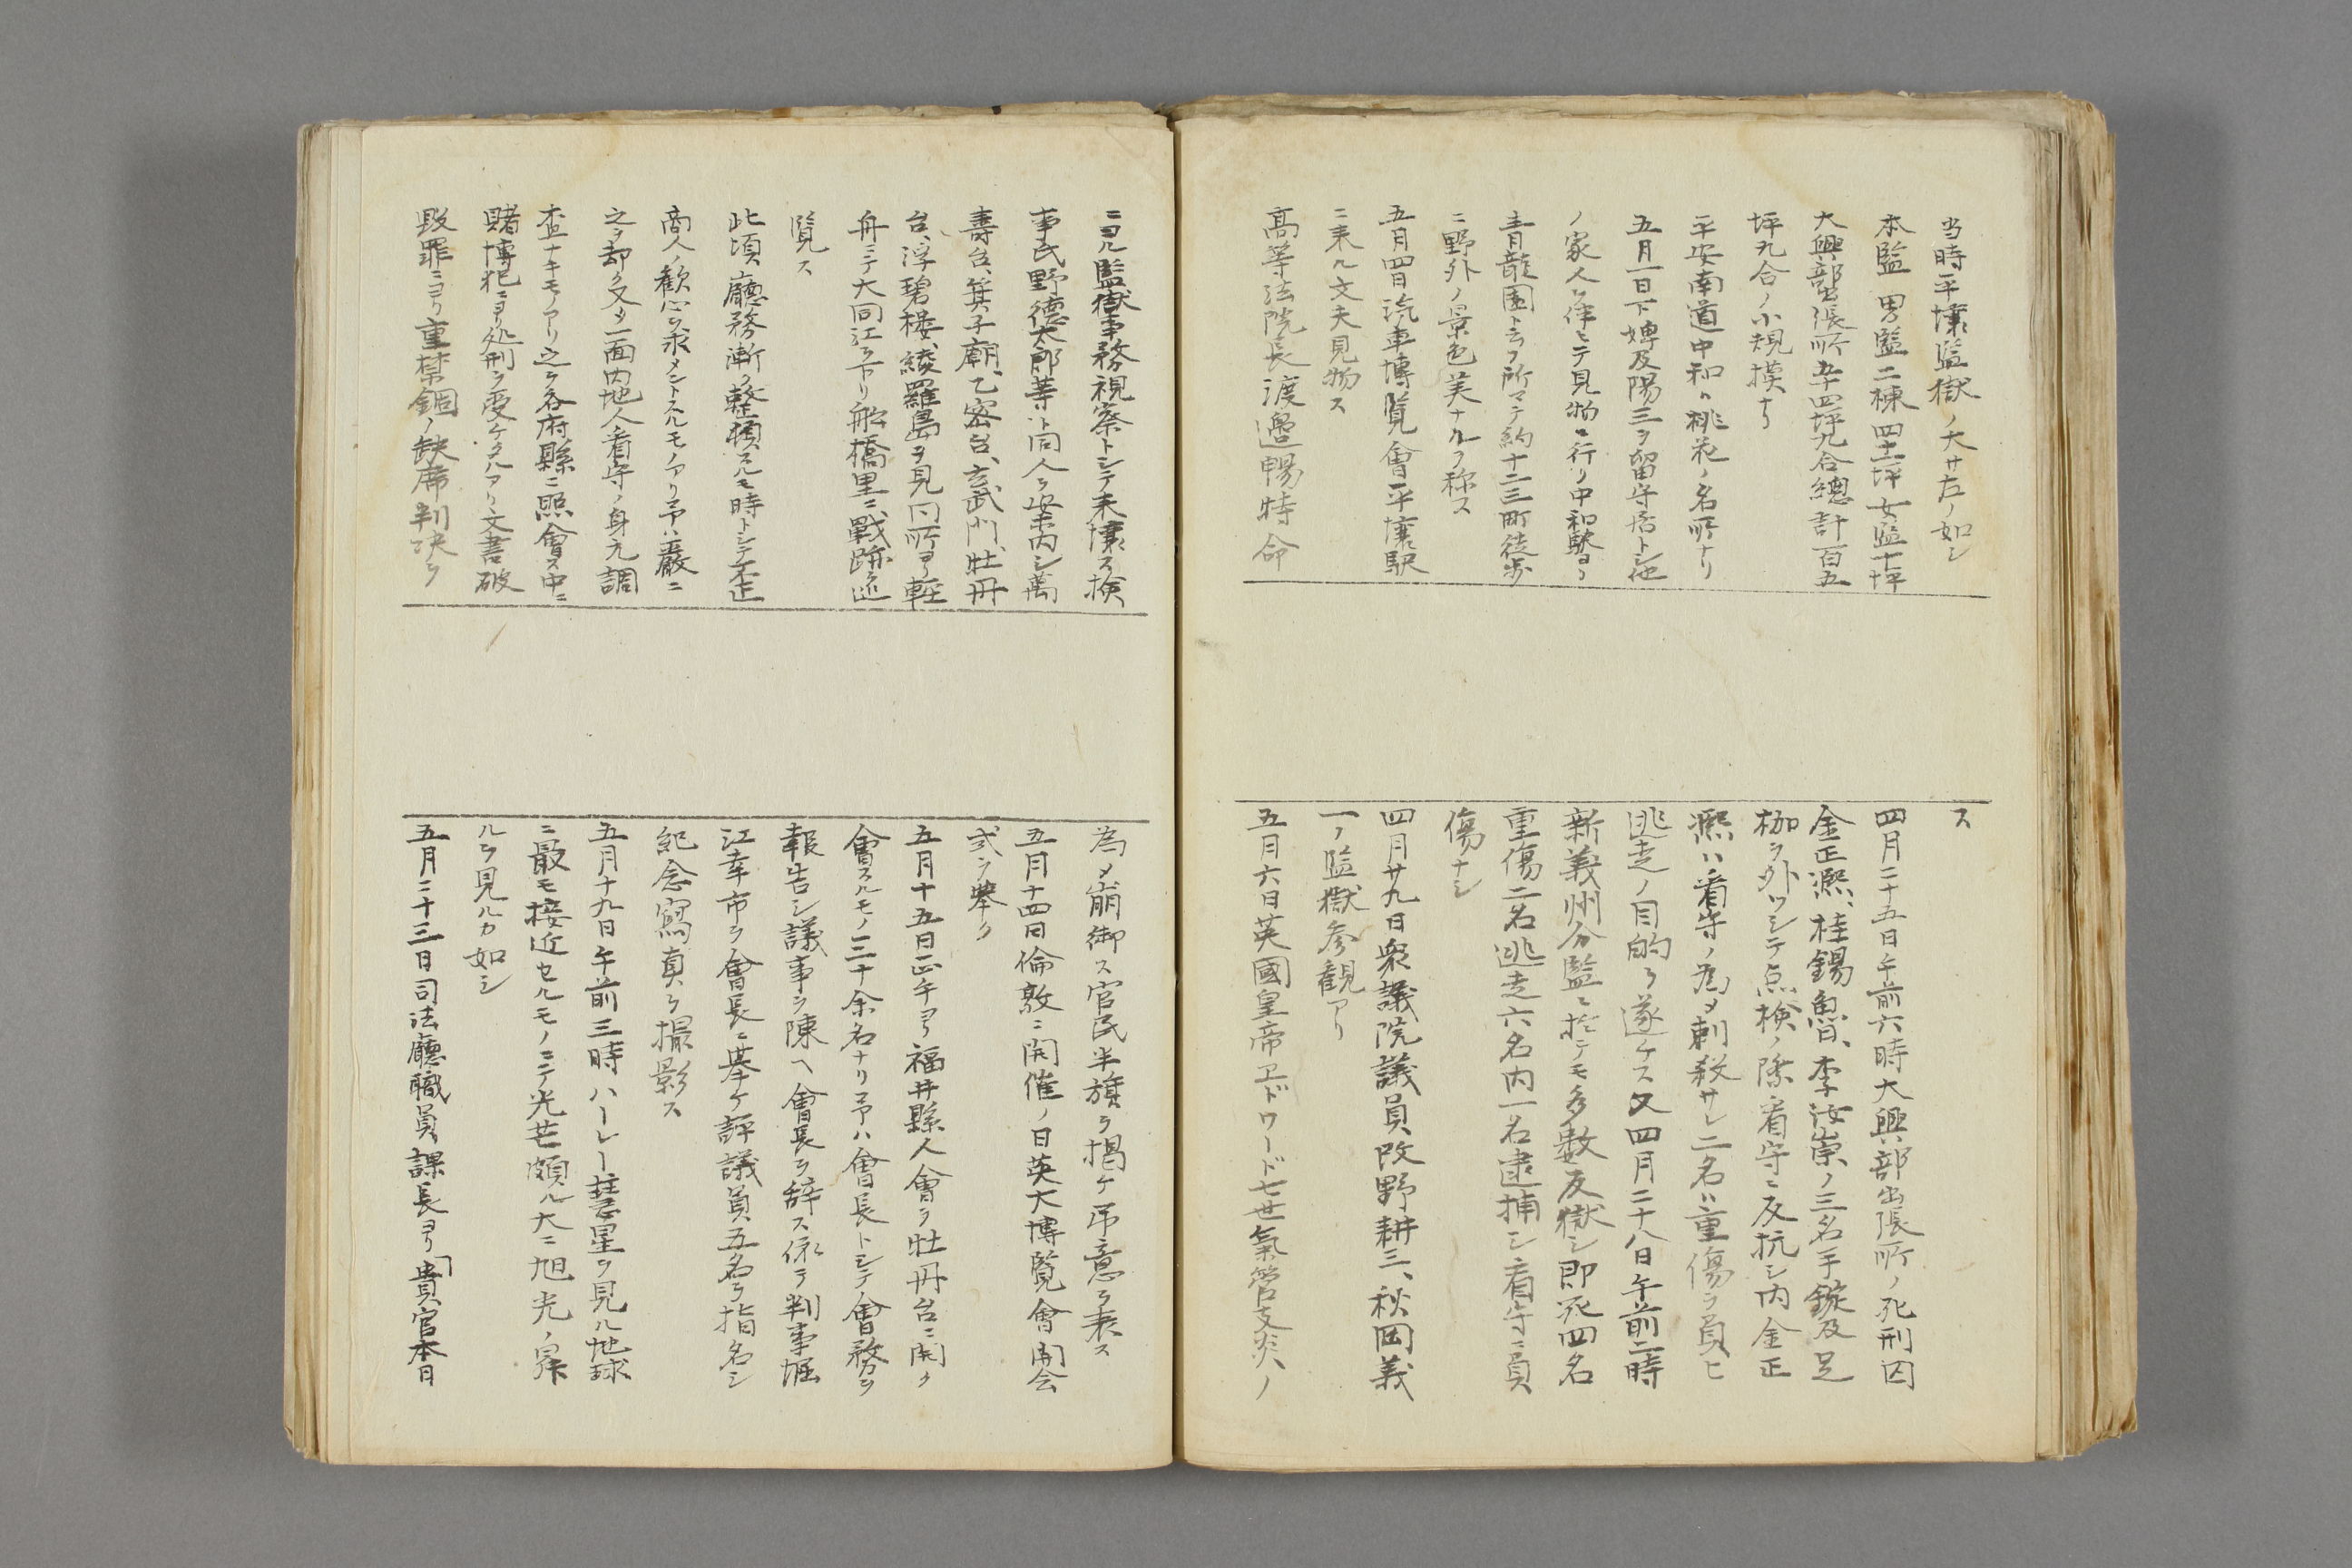 当時平壌監獄ノ大サ左ノ如シ
本監 男監二棟四十一坪女監十坪
大興部出張所五十四坪九合總計百五
坪九合ノ小規模ナリ
平安南道中和ハ桃花ノ名所ナリ
五月一日下婢及陽三ヲ留守居トシ他
ノ家人ヲ伴ヒテ見物ニ行リ中和駅ヨリ
青龍園ト云フ所マテ約十二三町徒歩
ニ野外ノ景色美ナルヲ称ス
五月四日汽車博覧會平壌駅
ニ来ル丈夫見物ス
高等法院長渡邉暢特命
ニヨル監獄事務視察トシテ来壌ス検
事民野徳太郎等ト同人ヲ案内シ萬
壽台、箕子廟、乙密台、玄武門、牡丹
台、浮碧楼、綾羅島ヲ見同所ヨリ軽
舟ニテ大同江ヲ下リ船橋里ニ戰跡ヲ巡
覧ス
此頃廳務漸ク整頓スルモ時トシテ不正
商人ノ歓心ヲ求メントスルモノアリ予ハ嚴ニ
之ヲ却ク又タ一面内地人看守ノ身元調
査ナキモノアリ之ヲ各府縣ニ照會ス中ニ
賭博犯ニヨリ処刑ヲ受ケタルアリ文書破
毀罪ニヨリ重禁錮ノ缺席判決ヲ
ス
四月二十五日午前六時大興部出張所ノ死刑囚
金正凞、桂錫魯、李汝崇ノ三名手錠及足
枷ヲ外ツシテ点検ノ際看守ニ反抗シ内金正
凞ハ看守ノ為メ刺殺サレ二名ハ重傷ヲ負ヒ
逃走ノ目的ヲ遂ケス又四月二十八日午前二時
新義州分監ニ於テモ多数反獄シ即死四名
重傷二名逃走六名内一名逮捕シ看守ニ員
傷ナシ
四月廿九日衆議院議員改野耕三、秋岡義
一ノ監獄参観アリ
五月六日英國皇帝エドワード七世氣管支炎ノ
為メ崩御ス官民半旗ヲ掲ケ吊意ヲ表ス
五月十四日倫敦ニ開催ノ日英大博覧會開会
式ヲ挙ク
五月十五日正午ヨリ福井縣人會ヲ牡丹台ニ開ク
會スルモノ三十余名ナリ予ハ會長トシテ會務ヲ
報告シ議事ヲ陳ヘ會長ヲ辞ス依テ判事堀
江幸市ヲ會長ニ挙ケ評議員五名ヲ指名シ
紀念寫真ヲ撮影ス
五月十九日午前三時ハーレー彗星ヲ見ル地球
ニ最モ接近セルモノニテ光芒頗ル大ニ旭光ノ昇
ルヲ見ルカ如シ
五月二十三日司法廳職員課長ヨリ「貴官本日